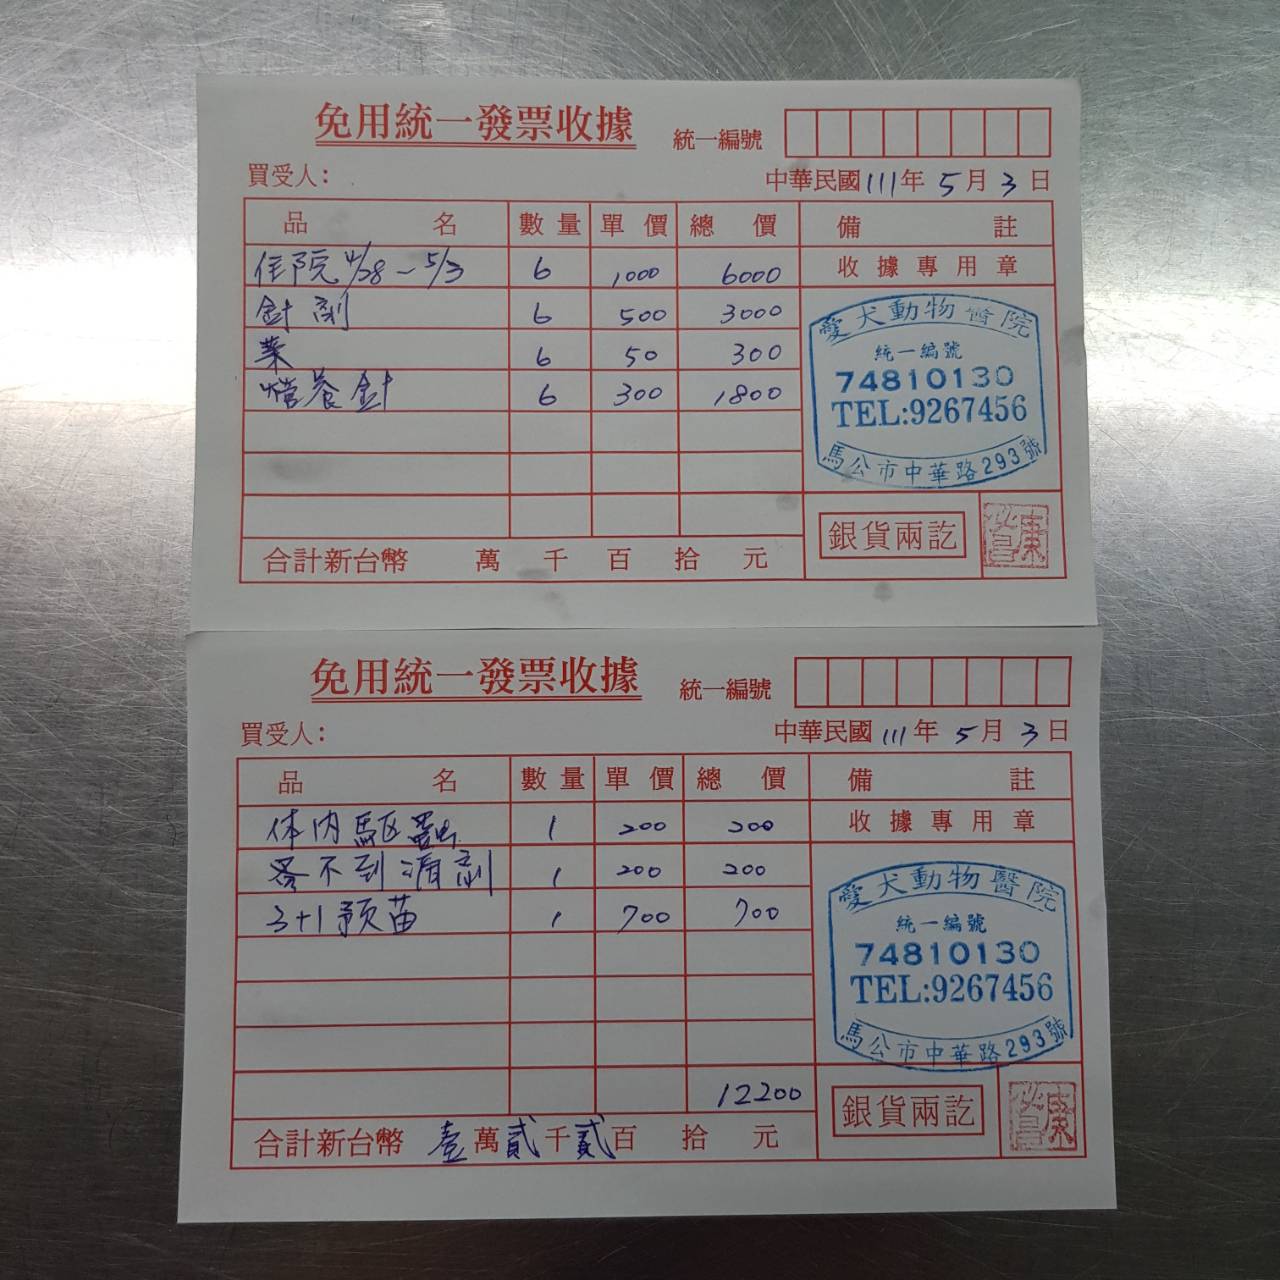 免用統一發票收據
統一編號
買受人：
中華民國111年5月3日
品名 數量 單價 總價 備註
住院4/28-5/3 6 1000 6000 收據專用章
針劑 6 500 3000
葯 6 50 300
營养針 6 300 1800
愛犬動物醫院
統一編號
74810130
TEL:9267456
馬公市中華路293號
合計新台幣 萬 千 百 拾 元
銀貨兩訖
免用統一發票收據
統一編號
買受人：
中華民國111年5月3日
品名 數量 單價 總價 備註
体內驅蟲 1 200 200 收據專用章
蚤不到滴劑 1 200 200
3+1預苗 1 700 700
愛犬動物醫院
統一編號
74810130
TEL:9267456
馬公市中華路293號
12200
合計新台幣 壹萬貳千貳百 拾 元
銀貨兩訖